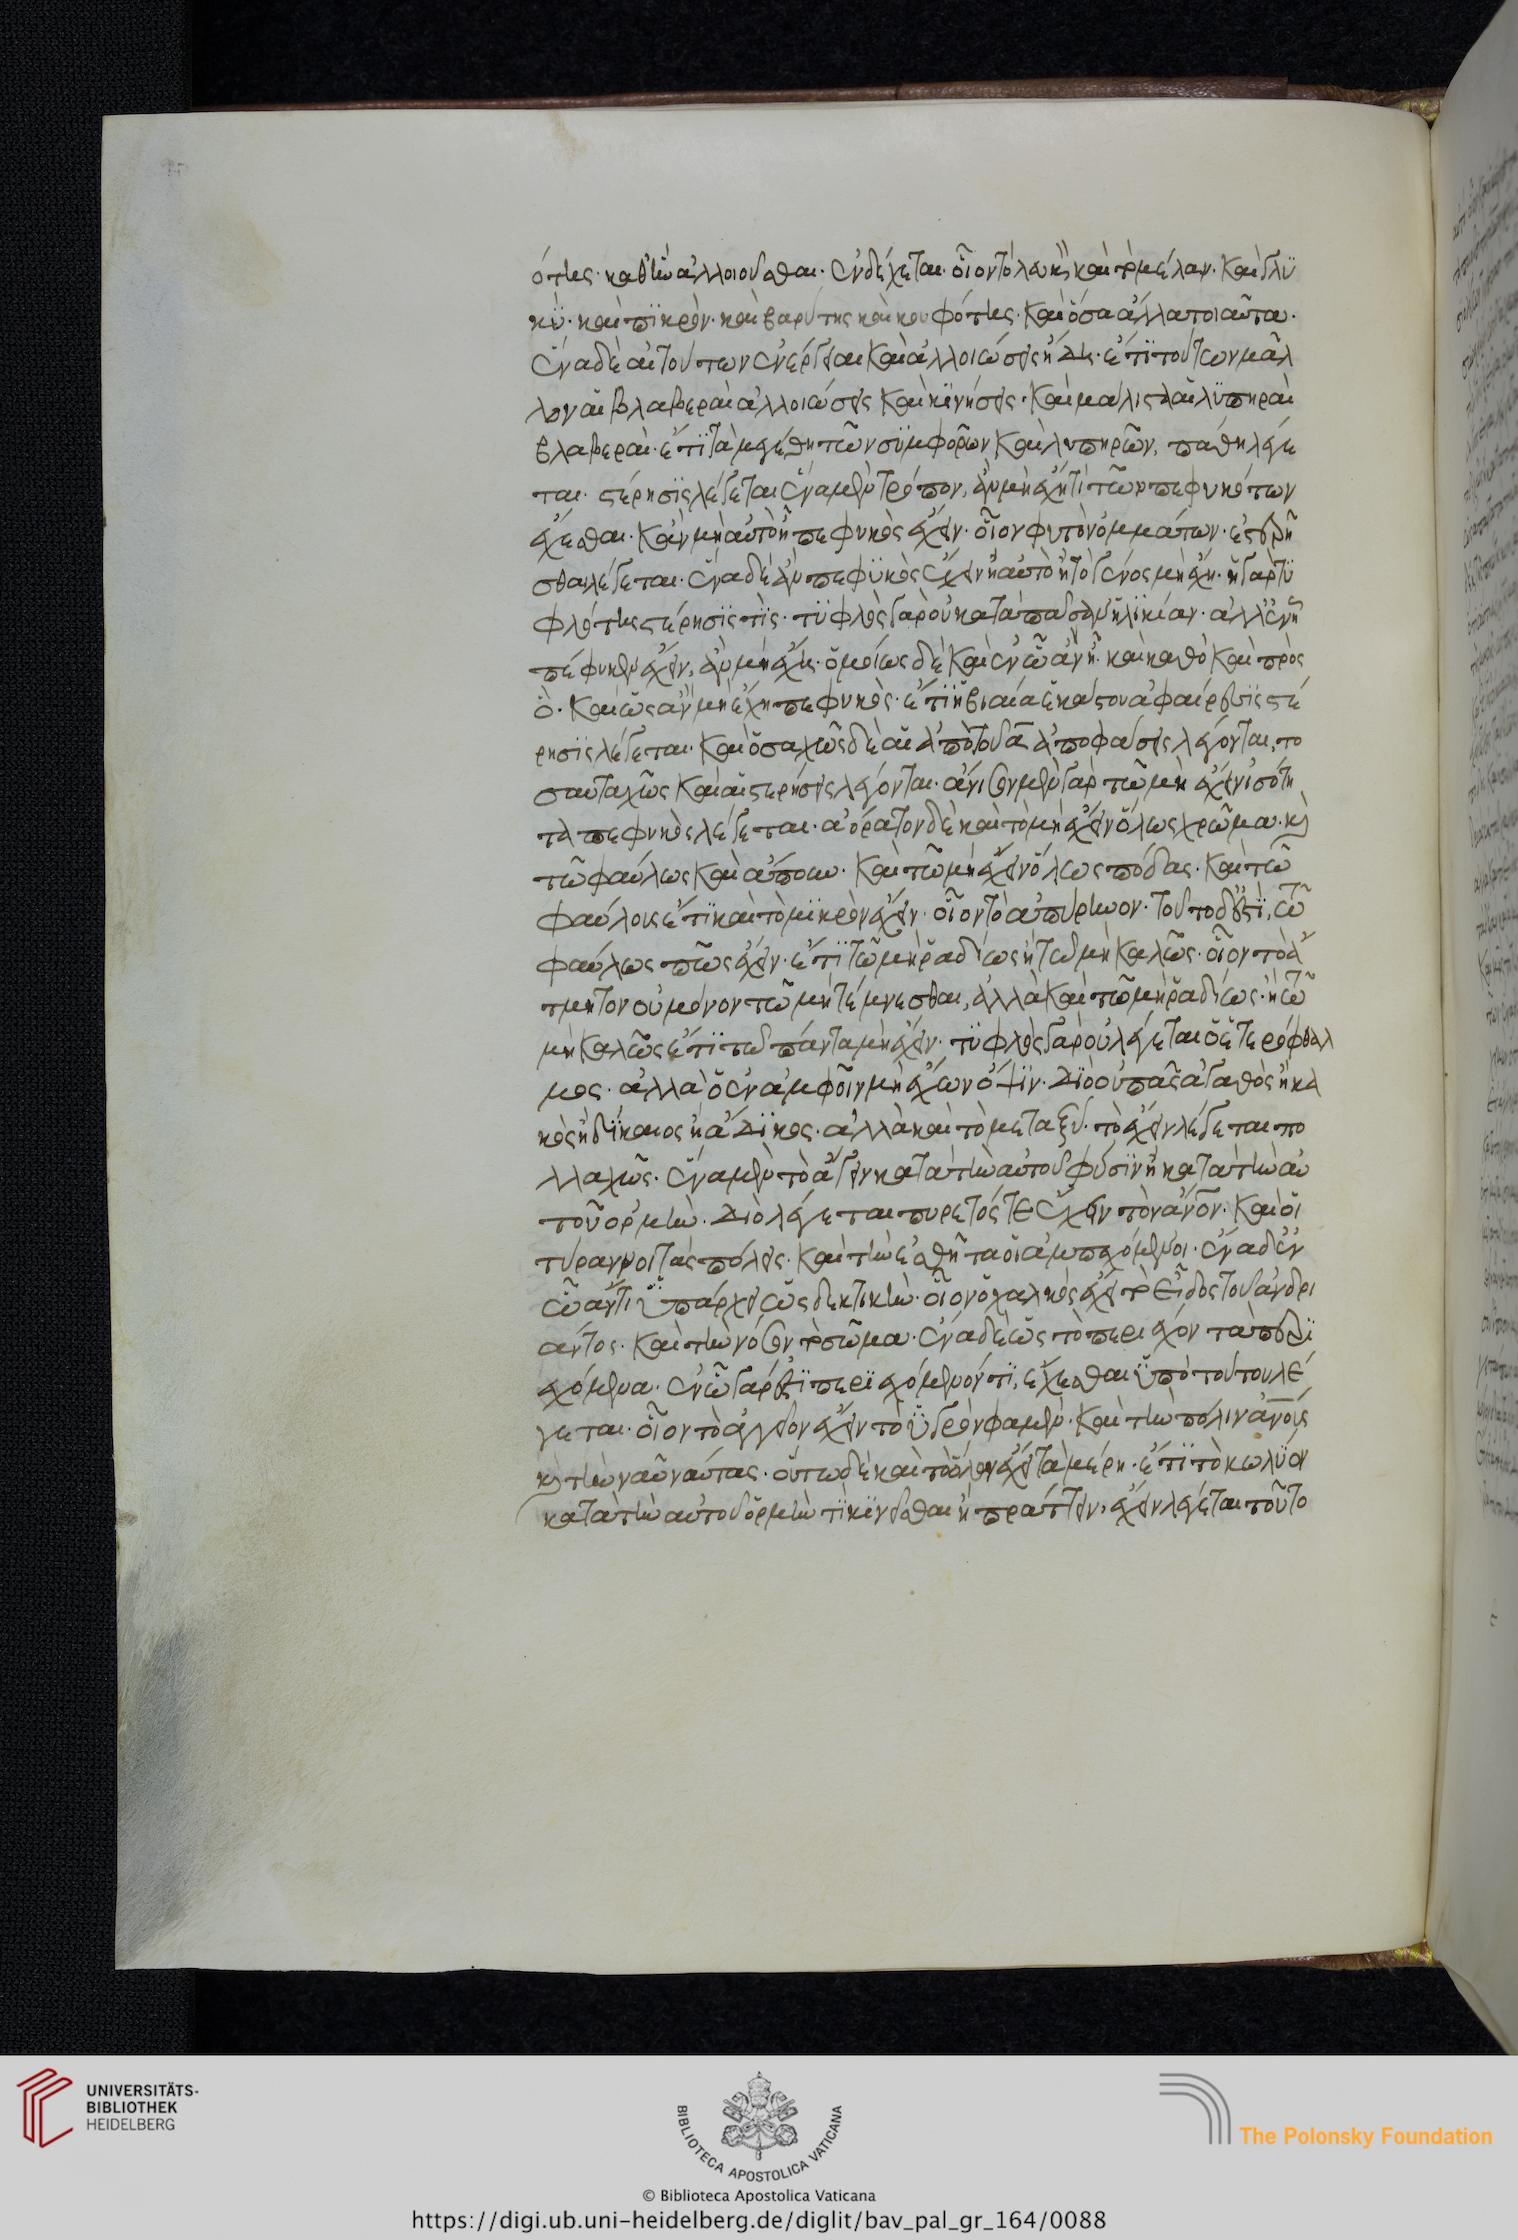 ότης· καθ' ἣν ἀλλοιοῦσθαι· ἐνδέχεται· οἷον τὸ λευκὸν καὶ τὸ μέλαν· καὶ γλϋ
κϋ· καὶ πϊκρὸν· καὶ βαρύτης καὶ κουφότης· καὶ ὅσα ἄλλα τοιαῦτα·
ἕνα δὲ αἱ τούτων ἐνέργειαι καὶ ἀλλοιώσεις ἤδη· ἔτϊ τούτων μᾶλ
λον αἱ βλαβεραὶ ἀλλοιώσεις καὶ κϊνήσεις· καὶ μάλιστα αἱ λϋπηραὶ
βλαβεραὶ· ἔτϊ τὰ μεγέθη τῶν σϋμφορῶν καὶ λυπηρῶν, πάθη λέγε
ται· στέρησϊς λέγεται ἕνα μὲν τρόπον, ἂν μὴ ἔχη τὶ τῶν πεφυκότων
ἔχεσθαι· κἂν μὴ αὐτὸ ἦ πεφυκὸς ἔχειν· οἷον φυτὸν ὀμμάτων· ἐστερῆ
σθαι λέγεται· ἕνα δὲ ἂν πεφϋκὸς ἔχειν ἢ αὐτὸ ἢ τὸ γένος μὴ ἔχη· ἡ γὰρ τϋ
φλότης στέρησϊς τϊς· τϋφλὸς γὰρ οὐ κατὰ πᾶσαν ἡλϊκίαν· ἀλλ' ἐν ἧ
πέφυκεν ἔχειν, ἂν μὴ ἔχη· ὁμοίως δὲ καὶ ἐν ὧ ἂν ἦ· καὶ καθὸ καὶ πρὸς
ὃ· καὶ ὡς ἂν μὴ ἔχη πεφυκὸς· ἔτϊ ἡ βιαία ἑκάστου ἀφαίρεσϊς στέ
ρησϊς λέγεται· καὶ ὁσαχῶς δὲ αἱ ἀπὸ τοῦ ᾱ ἀποφάσεις λέγονται, το
σαυταχῶς καὶ αἱ στερήσεις λέγονται· ἄνισον μὲν γὰρ τῶ μὴ ἔχειν ἰσότη
τα πεφυκὸς λέγεται· ἀόρατον δὲ καὶ τὸ μὴ ἔχειν ὅλως χρῶμα· κ(αὶ)
τῶ φαύλως καὶ ἄπουν· καὶ τῶ μὴ ἔχειν ὅλως πόδας· καὶ τῶ
φαύλους ἔτϊ καὶ τὸ μϊκρὸν ἔχειν· οἷον τὸ ἀπύρηνον· τοῦτο δ' ἐστϊ, τῶ
φαύλως πῶς ἔχειν· ἔτϊ τῶ μὴ ῥαδίως ἢ τῶ μὴ καλῶς· οἷον τὸ ἄ
τμητον οὐ μόνον τῶ μὴ τέμνεσθαι, ἀλλὰ καὶ τῶ μὴ ῥαδίως· ἢ τῶ
μὴ καλῶς ἔτϊ τῶ πάντα μὴ ἔχειν· τϋφλὸς γὰρ οὐ λέγεται ὁ ἑτερόφθαλ
μος· ἀλλὰ ὁ ἐν ἀμφοῖν μὴ ἔχων ὄψϊν· δϊὸ οὐ πᾶς ἀγαθὸς ἢ κα
κὸς ἢ δίκαιος ἢ ἄδϊκος· ἀλλὰ καὶ τὸ μεταξύ· τὸ ἔχειν λέγεται πο
λλαχῶς· ἕνα μὲν τὸ ἄγειν κατὰ τὴν αὐτοῦ φύσϊν ἢ κατὰ τὴν αὑ
τοῦ ὁρμὴν· διὸ λέγεται πυρετός τε ἔχειν τὸν ἄν(θρωπ)ον· καὶ οἱ
τύραννοι τὰς πόλεις· καὶ τὴν ἐσθῆτα οἱ ἀμπεχόμενοι· ἕνα δ' ἐν
ὧ ἄν τι ὑπάρχει ὡς δεκτικὴν· οἷον ὁ χαλκὸς ἔχει τὸ εἶδος τοῦ ἀνδρι
άντος· καὶ τὴν νόσον τὸ σῶμα· ἕνα δὲ ὡς τὸ περιέχον τὰ περϊ
εχόμενα· ἐν ὧ γάρ ἐστϊ περϊεχόμενόν τϊ, ἔχεσθαι ὑπὸ τούτου λέ
γεται· οἷον τὸ ἀγγεῖον ἔχειν τὸ ὑγρόν φαμὲν· καὶ τὴν πόλιν ἀν(θρώπ)οις
κ(αὶ) τὴν ναῦν ναύτας· οὕτω δὲ καὶ τὸ ὅλον ἔχει τὰ μέρη· ἔτϊ τὸ κωλῦον
κατὰ τὴν αὐτοῦ ὁρμὴν τϊ κϊνεῖσθαι ἢ πράττειν, ἔχειν λέγεται τοῦτο
UNIVERSITÄTS-
BIBLIOTHEK
HEIDELBERG
BIBLIOTECA APOSTOLICA VATICANA
The Polonsky Foundation
© Biblioteca Apostolica Vaticana
https://digi.ub.uni-heidelberg.de/diglit/bav_pal_gr_164/0088